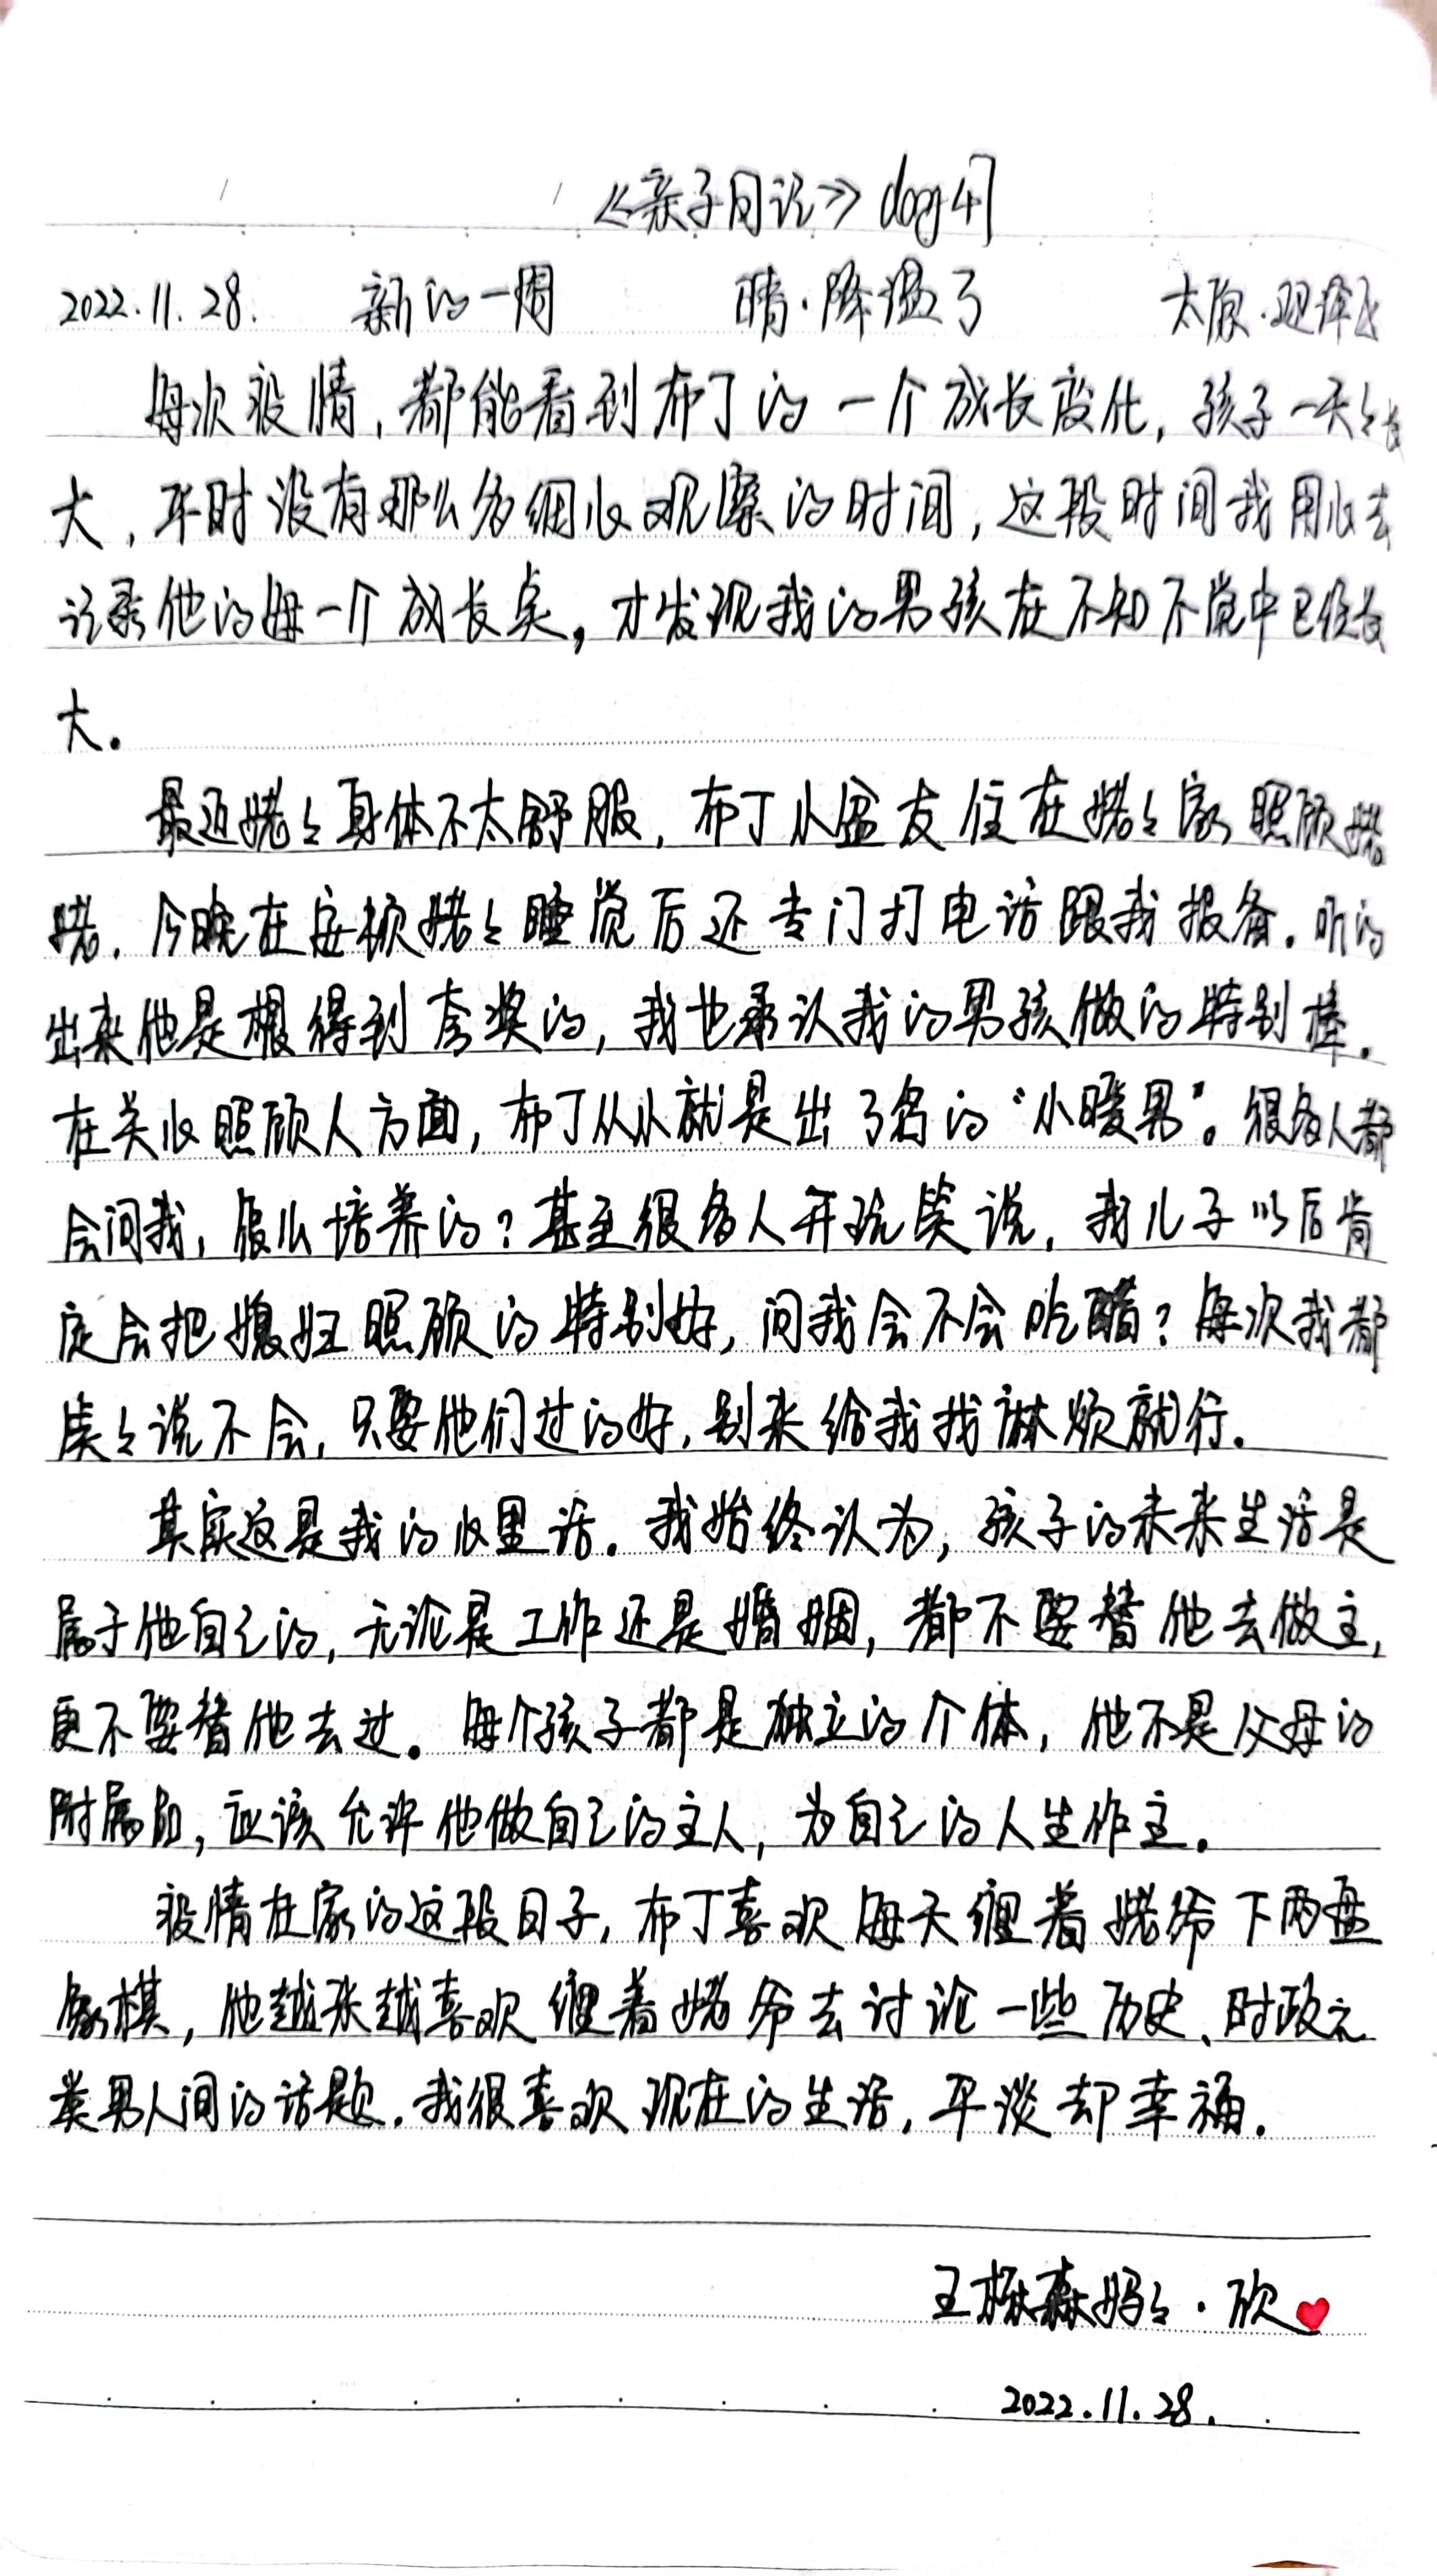 《亲子日记》day47
2022.11.28. 新的一周 晴·降温了 太原·迎泽
每次疫情,都能看到布丁的一个成长变化,孩子一天々长
大,平时没有那么多细心观察的时间,这段时间我用心去
记录他的每一个成长点,才发现我的男孩在不知不觉中已经长
大。
最近姥々身体不太舒服,布丁小盆友住在姥々家照顾姥
姥.今晚在安顿姥々睡觉后还专门打电话跟我报备.听的
出来他是想得到夸奖的,我也承认我的男孩做的特别棒.
在关心照顾人方面,布丁从小就是出了名的“小暖男”。很多人都
会问我,怎么培养的?甚至很多人开玩笑说,我儿子以后肯
定会把媳妇照顾的特别好,问我会不会吃醋?每次我都
笑々说不会,只要他们过的好,别来给我找麻烦就行.
其实这是我的心里话.我始终认为,孩子的未来生活是
属于他自己的,无论是工作还是婚姻,都不要替他去做主,
更不要替他去过。每个孩子都是独立的个体,他不是父母的
附属品,应该允许他做自己的主人,为自己的人生作主.
疫情在家的这段日子,布丁喜欢每天缠着姥爷下两盘
象棋,他越来越喜欢缠着姥爷去讨论一些历史、时政之
类男人间的话题.我很喜欢现在的生活,平淡却幸福.
王楙森妈々·欣
2022.11.28.